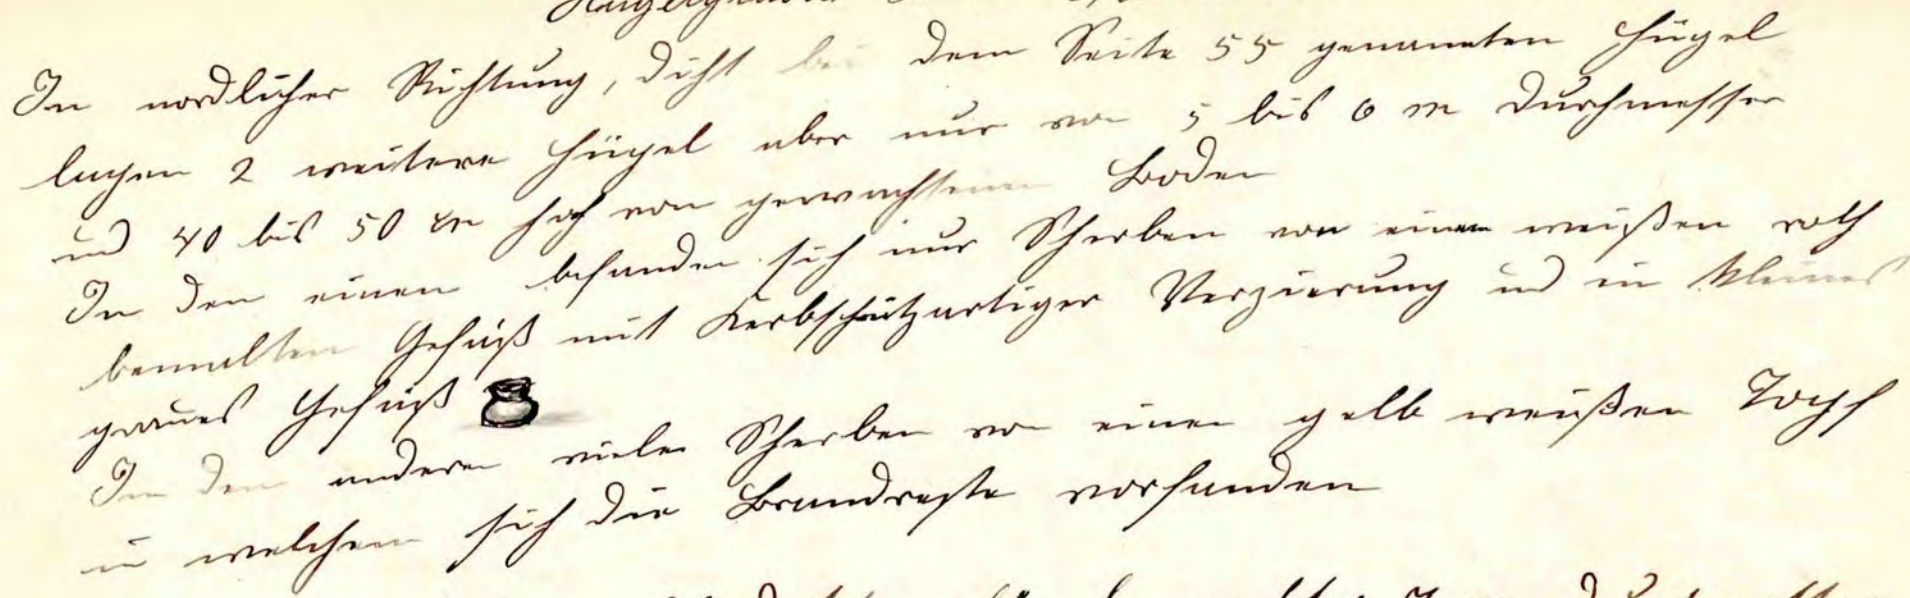 In nordlicher Richtung, dicht bei dem Seite 55 genannten Hügel
lagen 2 weitere Hügel aber nur von 5 bis 6 m Durchmesser
und 40 bis 50 cm hoch von gewachsenen Boden
In den einen befanden sich nur Scherben von einem weißen roth
bemalten Gefäß mit Kerbschnitzartiger Verzierung und ein kleines
graues Gefäß
In dem anderen viele Scherben von einen gelb weißen Topf
in welchem sich die Brandreste vorfanden